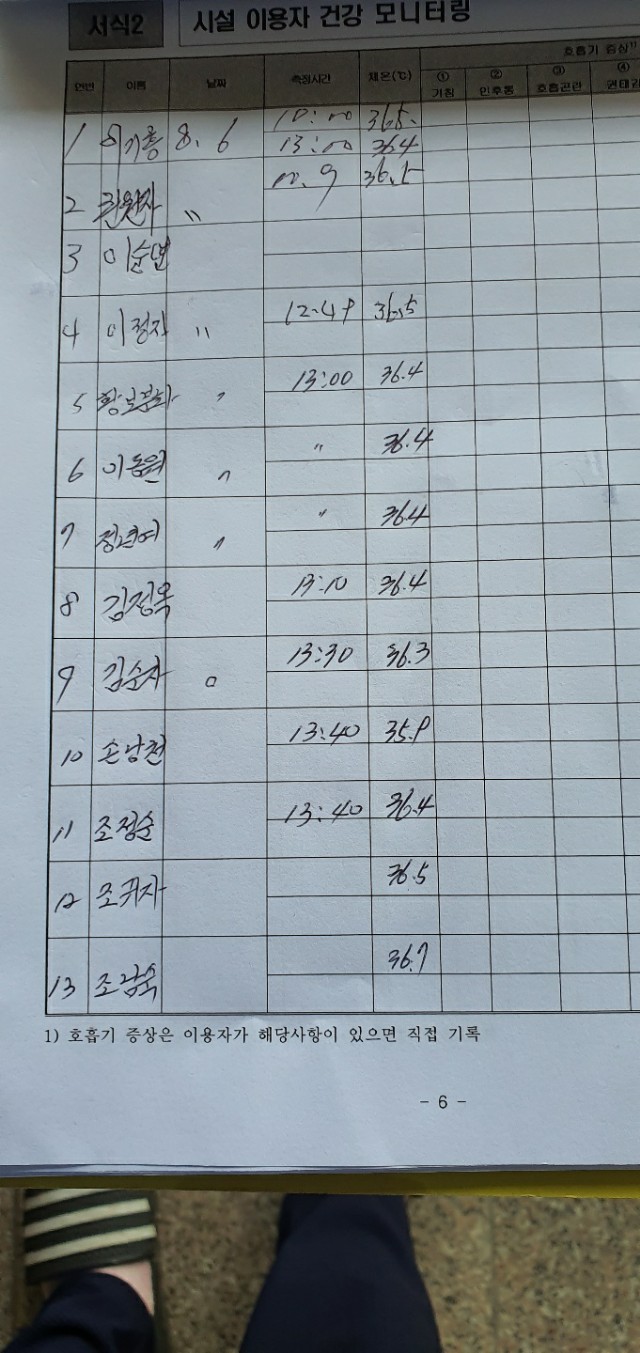 서식2 시설 이용자 건강 모니터링
연번 이름 날짜 측정시간 체온(℃) 호흡기 증상1)
① 기침 ② 인후통 ③ 호흡곤란 ④ 권태감
1 8. 6 10:00 36.5
13:00 36.4
2 〃 36.5
3 이순연
4 이정자 〃 12.49 36.5
5 황보분희 〃 13:00 36.4
6 이동원 〃 〃 36.4
7 정년여 〃 〃 36.4
8 김정옥 13:10 36.4
9 김순자 〃 13:30 36.3
10 손남현 13:40 35.9
11 조정순 13:40 36.4
12 조귀자 36.5
13 조남숙 36.7
1) 호흡기 증상은 이용자가 해당사항이 있으면 직접 기록
- 6 -